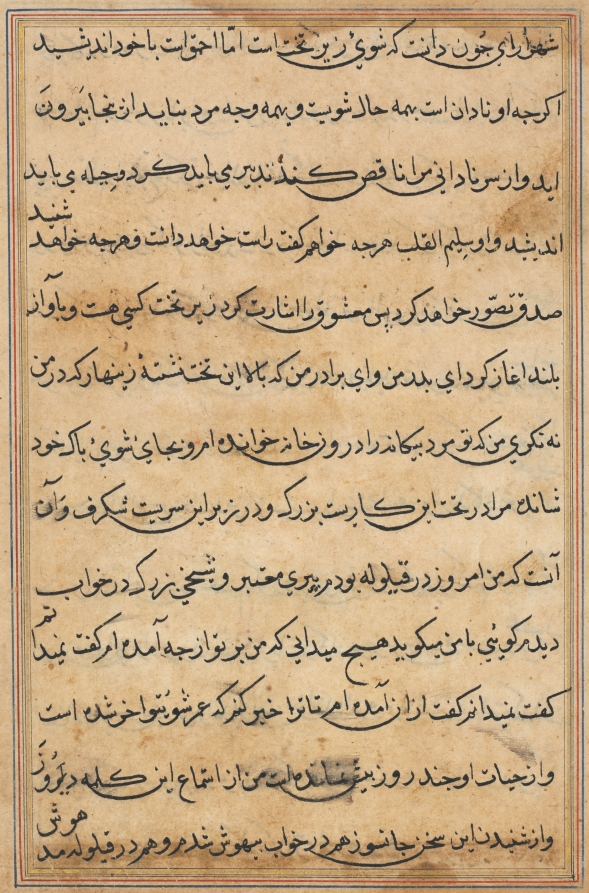 شهرآرای چون دانست که شوی زیر تختست اما احمق است با خود اندیشید
اکرجه او نادان است بهمه حال شویست و بهمه وجه مرد بناید از ینجا بیرون
اید و از سر نادانی مرا ناقص کند تدبیر می باید کرد و حیله می باید
اندیشید و او سلیم القلب هرجه خواهم کفت راست خواهد دانست و هرجه خواهد شنید
صدق تصور خواهد کرد پس معشوق را اشارت کرد زیر تخت کسی هست و بآواز
بلند اغاز کرد ای بدر من و ای برادر من که بالا این تخت نشستۀ زینهار که در من
نه نکری من که تو مرد بیکانه را در روز خانه خوانده امروز بجای شوی باک خود
شانده مرا در تحت این کاریست بزرک و در زیر این سریست شکرف و آن
آنست که من امروز در قیلوله بودم پیری معتبر و شیخی بزرک در خواب
دیدم کویئی با من میکوید هیچ میدانی که من بر تو از جه آمده ام کفتم نمیدا
کفت نمیدانم کفت از ان آمده ام تا ترا خبر کنم که عمر شویتو اخر شده است
و از حیات او جند روز بیش نمانده است من از استماع این کلمه دلدوز
و از شنیدن این سخن جانسوز هم در خواب بیهوش شدم و هم در قیلوله مد هوش